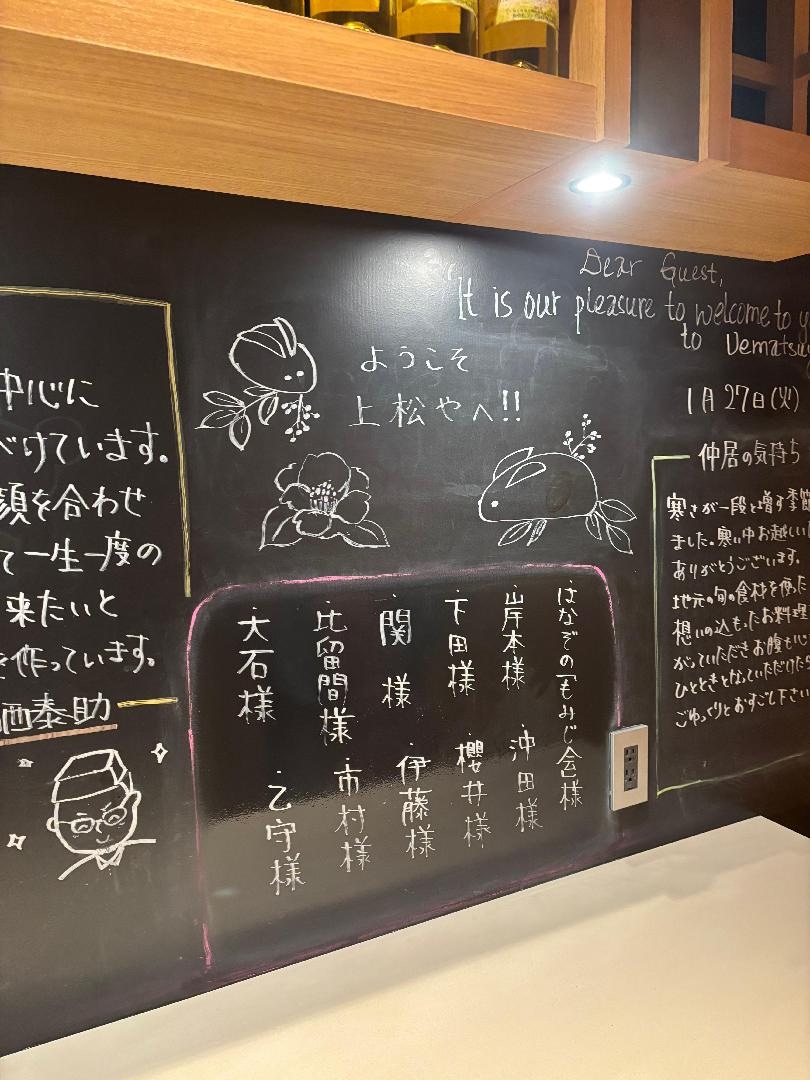 Dear Guest,
It is our pleasure to welcome to
to Uematsuy
1月27日(火)
ようこそ
上松やへ!!
仲居の気持ち
寒さが一段と増す季節
ました。寒い中お越しい
ありがとうございます。
地元の旬の食材を使った
想いの込もったお料理
がっていただきお腹も
ひとときとなっていただけた
ごゆっくりとおすごし下さい
・はなぞの「もみじ会」様
・岸本様
・沖田様
・下田様
・櫻井様
・関 様
・伊藤様
・比留間様
・市村様
・大石様
・乙守様
中心に
べけています。
顔を合わせ
て一生一度の
来たいと
を作っています。
西泰助